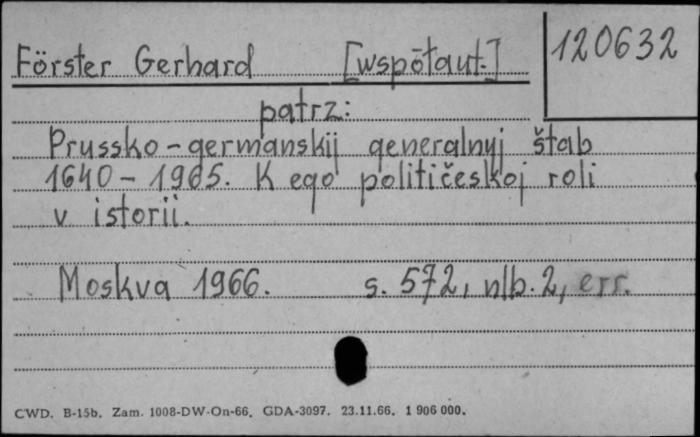 Förster Gerhard [wspōłaut.] 120632
patrz:
Prussko-germanskij generalnyj štab
1640-1965. K ego političeskoj roli
v istorii.
Moskva 1966. s. 572, nlb. 2, err.
CWD. B-15b. Zam. 1008-DW-On-66. GDA-3097. 23.11.66. 1 906 000.